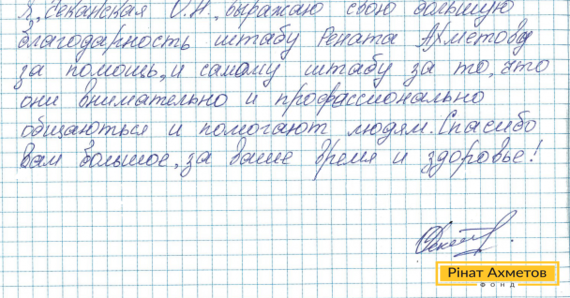 Я, Секанская О.Н., выражаю свою большую
благодарность штабу Рената Ахметова
за помощь, и самому штабу за то, что
они внимательно и профассионально
общаються и помогают людям. Спасибо
Вам большое, за ваше время и здоровье!
Рінат Ахметов
ФОНД